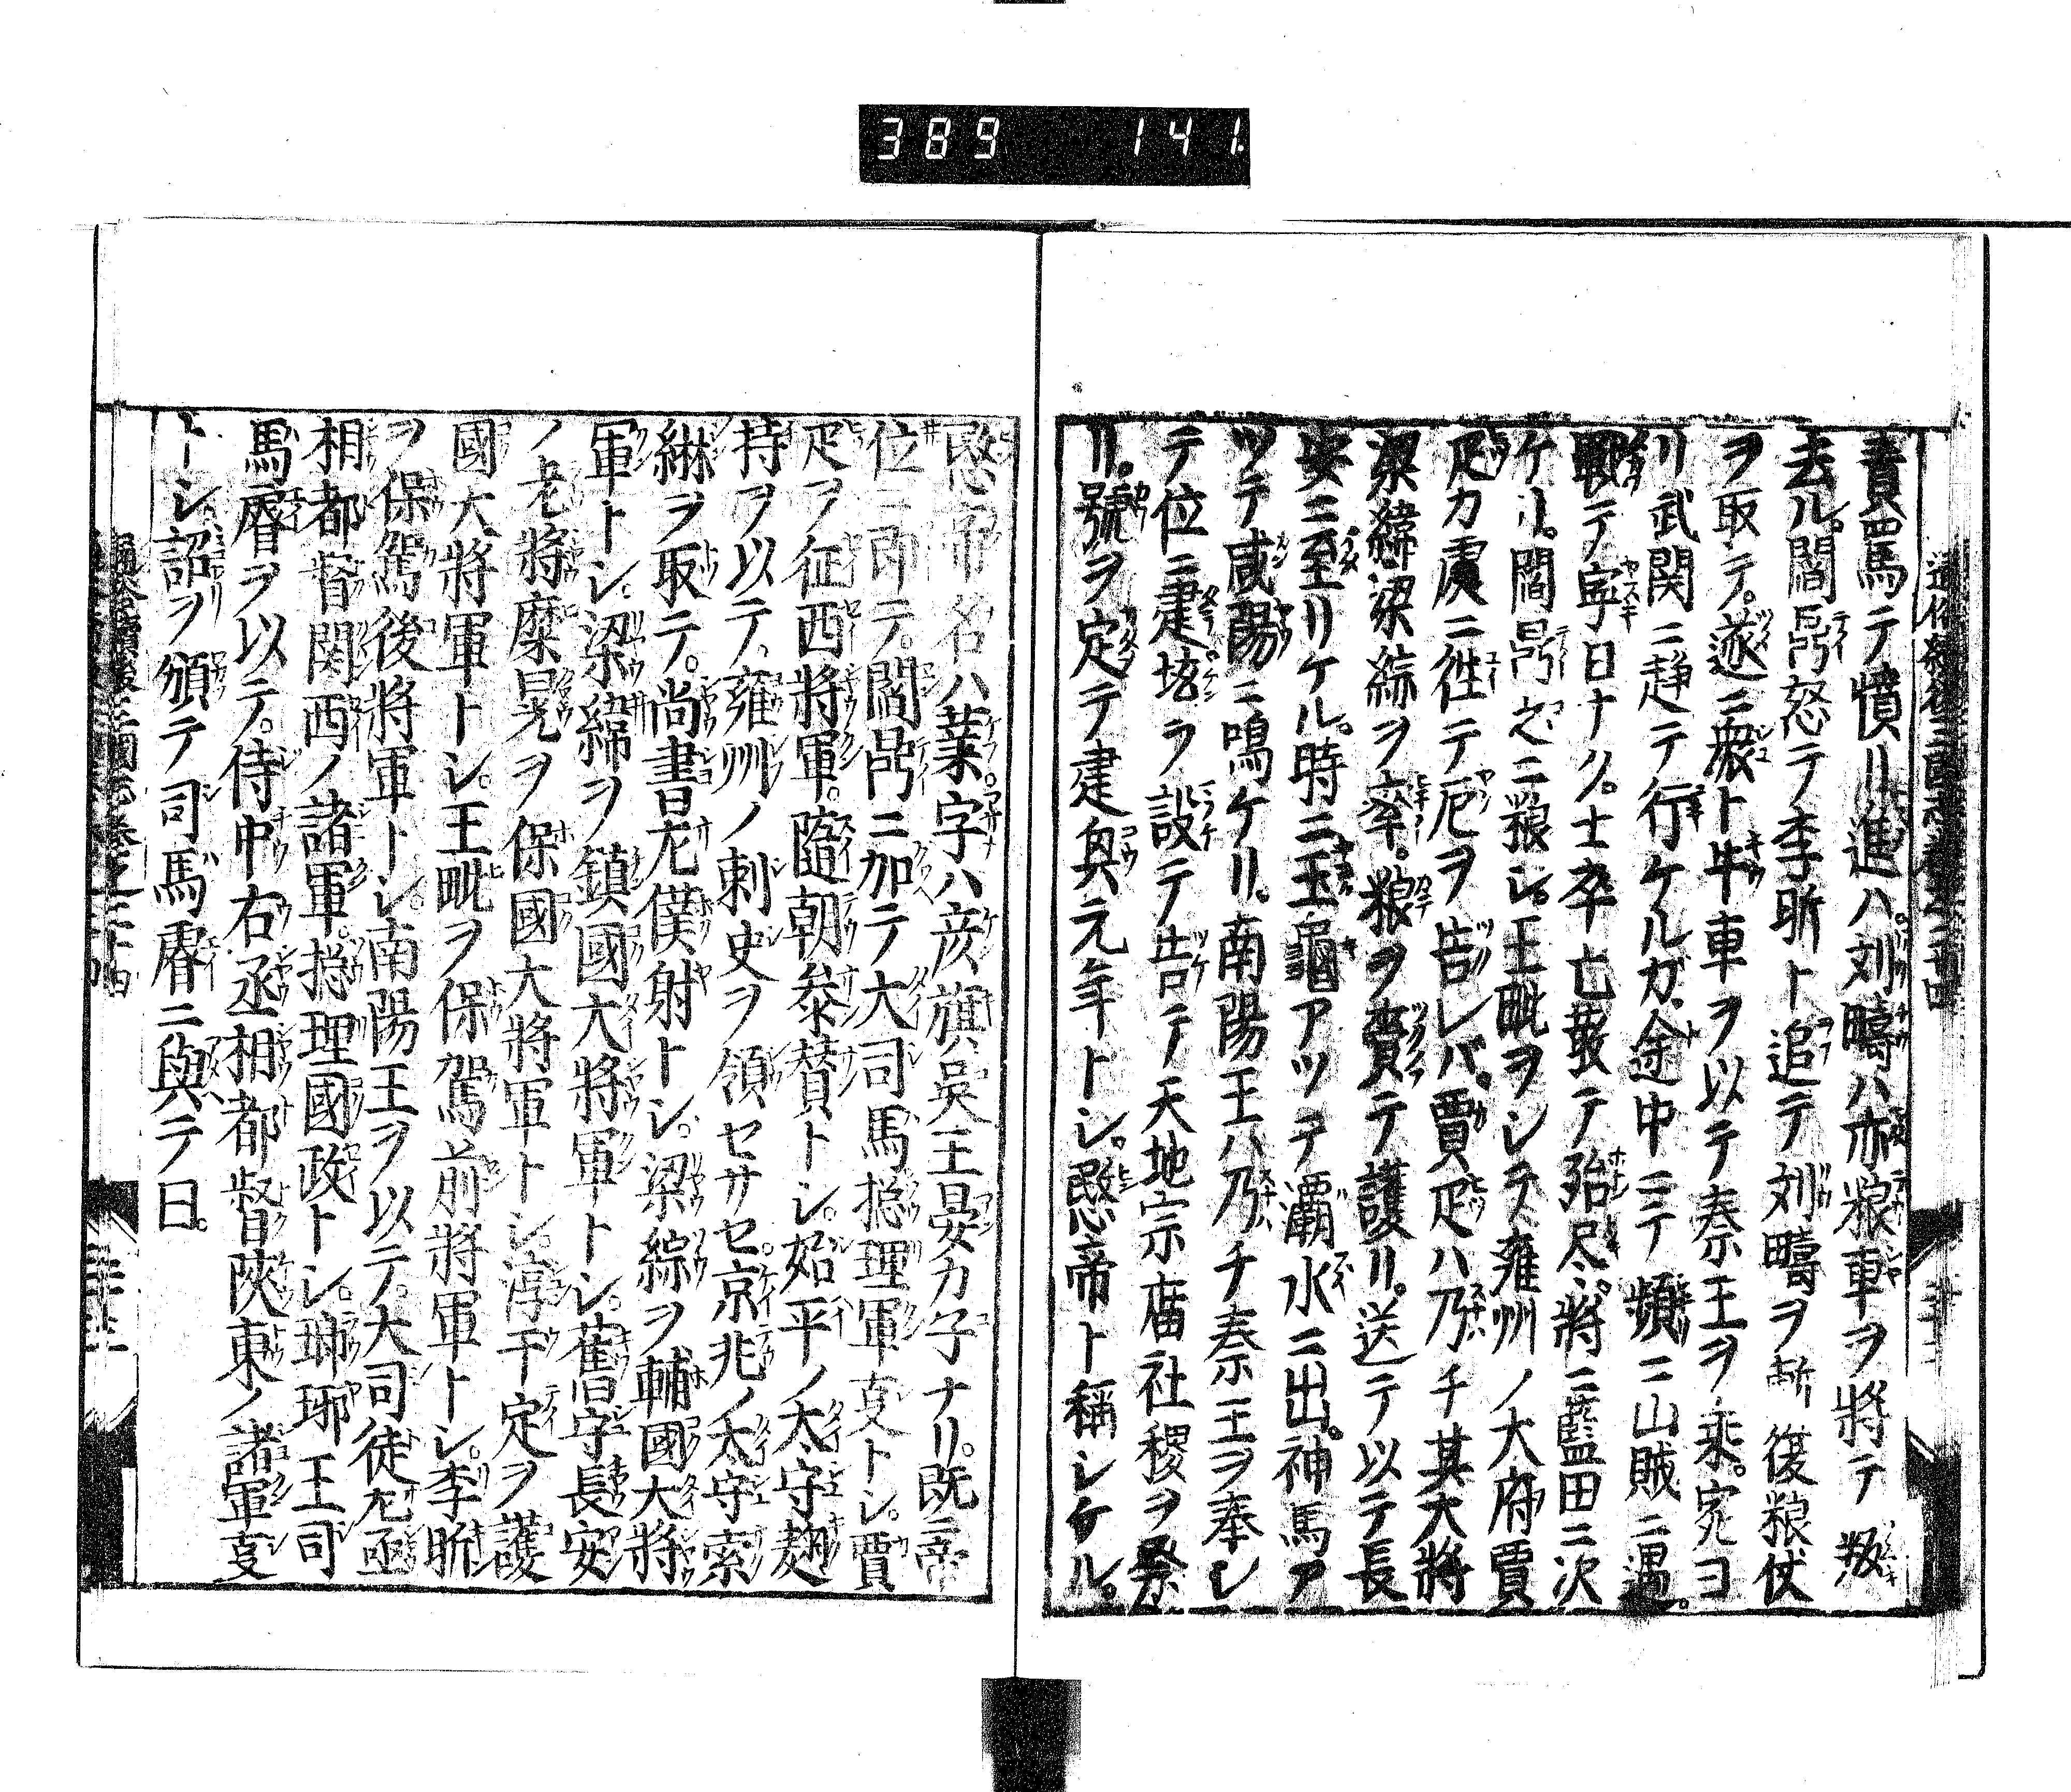 389 141.
責罵テ憤リ進ハ。刘疇ハ亦粮車ヲ將テ叛
去ル。閻䦙怒テ李昕ト追テ刘疇ヲ斬復粮仗
ヲ取テ。遂ニ衆ト牛車ヲ以テ秦王ヲ乗。宛ヨ
リ武関ニ趣テ行ケルカ、途中ニテ頻ニ山賊ニ遇。
戰テ寧日ナク。士卒亡散テ殆尽。將ニ藍田ニ次
ケリ。閻之ニ粮シ。王毗ヲシテ雍州ノ大府賈
疋カ處ニ徃テ厄ヲ告レバ。賈疋ハ乃チ其大將
梁緯梁綜ヲ率。粮ヲ賷テ護リ。送テ以テ長
安ニ至リケル。時ニ玉龜アツテ灞水ニ出。神馬ア
ツテ咸陽ニ鳴ケリ。南陽王ハ乃チ秦王ヲ奉シ
テ位ニ建。壇ヲ設テ告テ天地宗庿社稷ヲ祭
リ。號ヲ定テ建興元年トシ。愍帝ト稱シケル。
愍帝名ハ業。字ハ彦旗呉王晏カ子ナリ。既ニ帝
位ニ即テ。閻ニ加テ大司馬捴理軍叓トシ。賈
疋ヲ征西將軍。隨朝叅賛トシ。始平ノ太守麹
持ヲ以テ、雍州ノ刺史ヲ領セサセ。京兆ノ太守索
綝ヲ取テ。尚書左僕射トシ。梁綜ヲ輔國大將
軍トシ。梁緯ヲ鎮國大將軍トシ。舊守長安
ノ老將糜晃ヲ保國大將軍トシ。淳于定ヲ護
國大將軍トシ。王毗ヲ保駕前將軍トシ。李昕
ヲ保駕後將軍トシ。南陽王ヲ以テ。大司徒左丞
相都督関西ノ諸軍。捴理國政トシ。琅琊王司
馬睿ヲ以テ。侍中右丞相都督陝東ノ諸軍叓
トシ詔ヲ頒テ司馬睿ニ與テ曰。